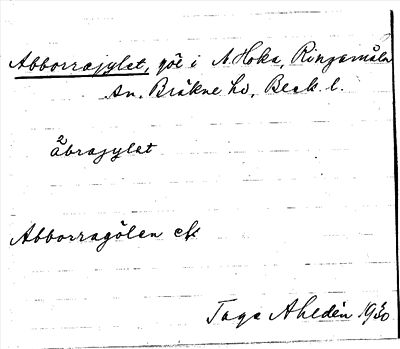 Abborragylet, göl i N. Hoka, Ringamåla
sn. Bräkne hd, Blek. l.
2
åbragylet
Abborragölen ek
Tage Ahldén 1930